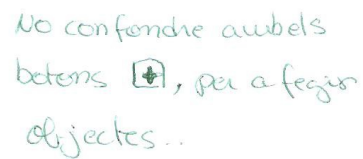 No confondre ambels
botons [+], per afegir
objectes..